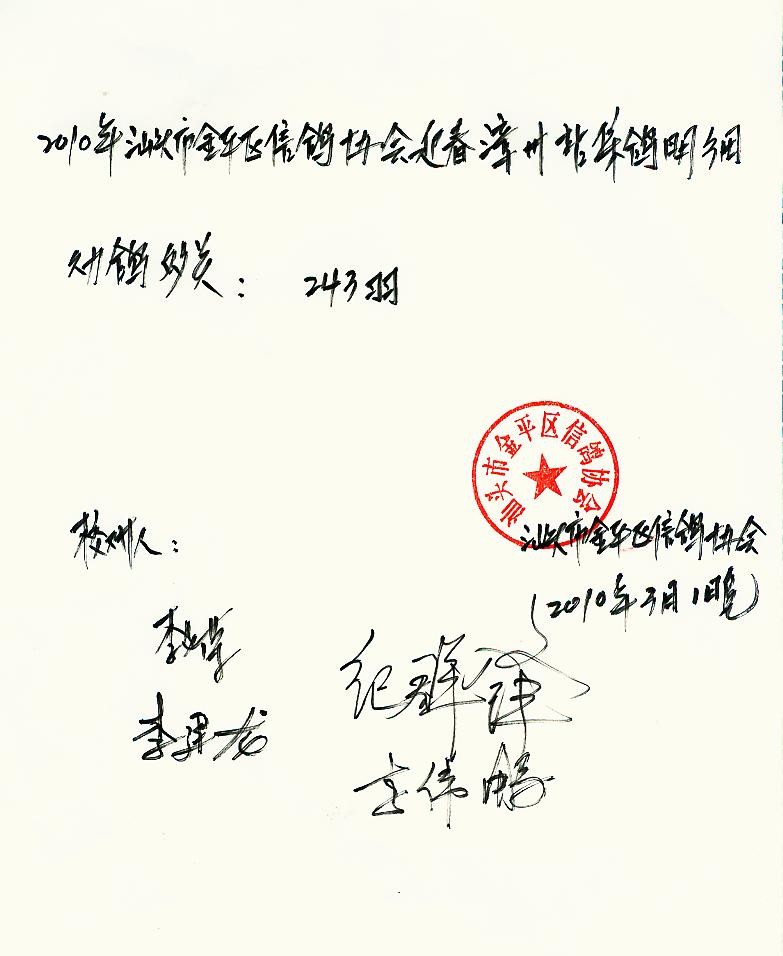 2010年汕头市金平区信鸽协会迎春漳州站集鸽明细
参鸽数为: 243羽
汕头市金平区信鸽协会
校对人:
汕头市金平区信鸽协会
(2010年3月1日晚)
李
纪群锋
李界龙
李伟鹏